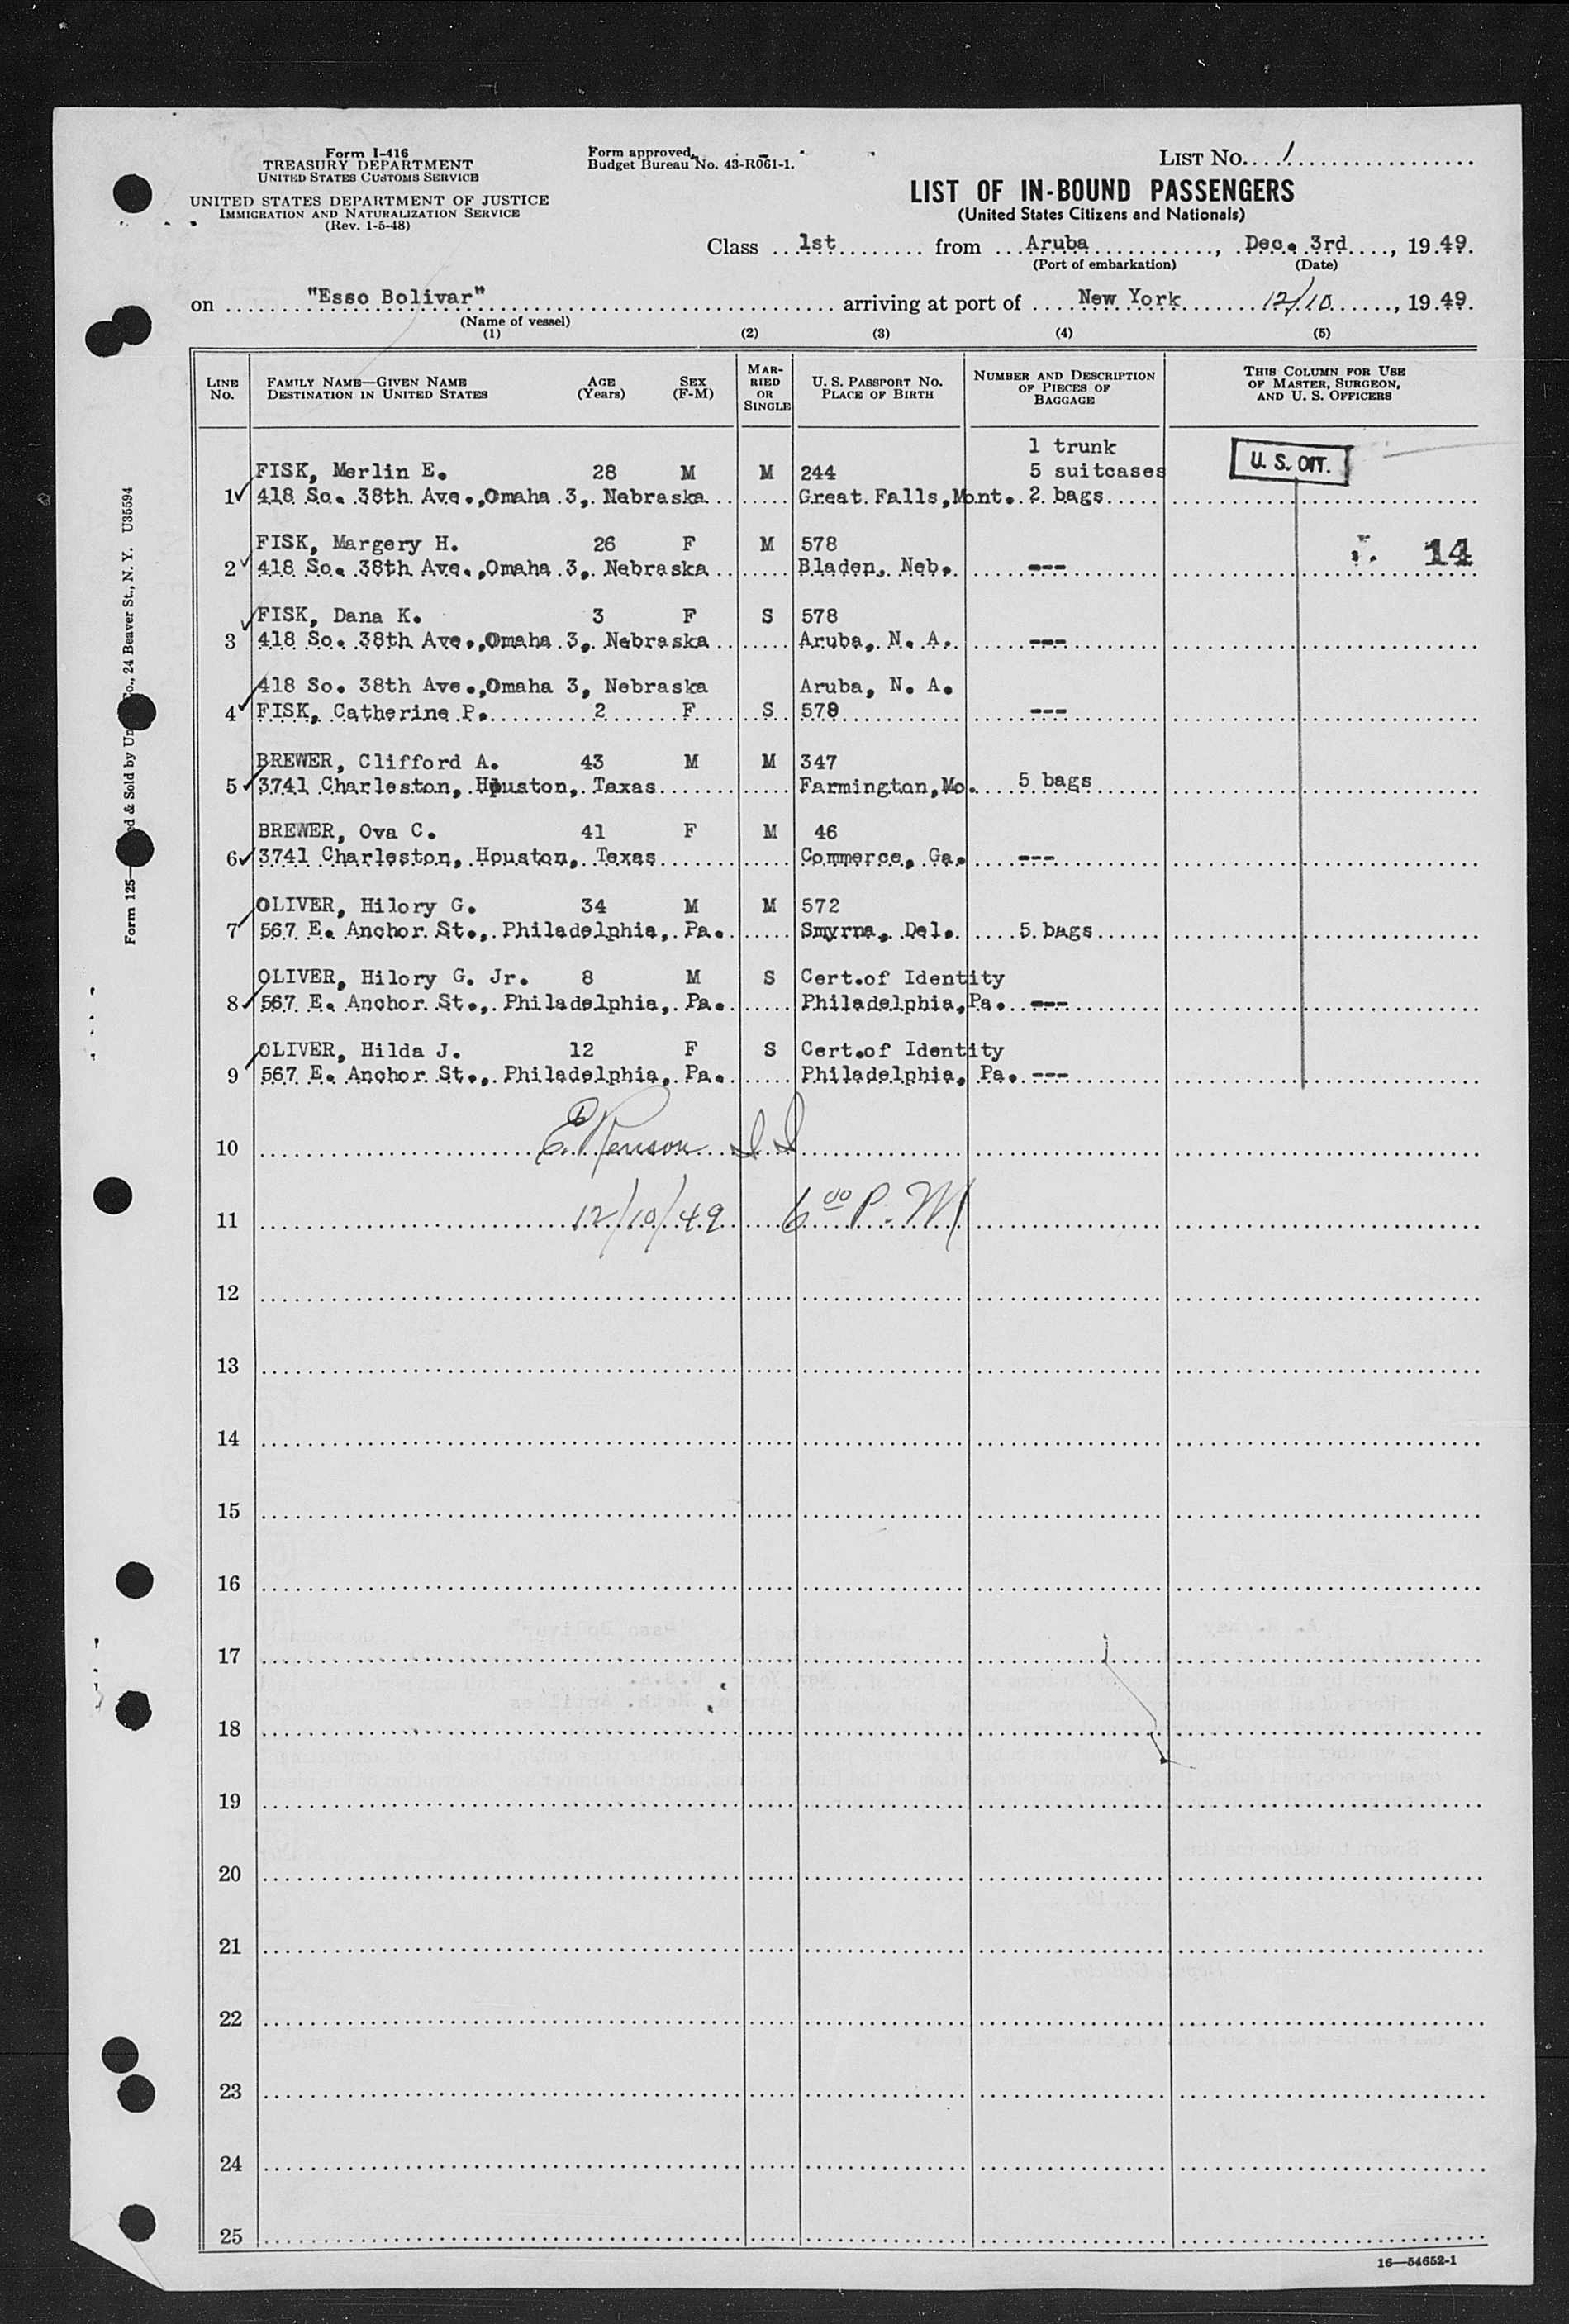 Form I-416
TREASURY DEPARTMENT
UNITED STATES CUSTOMS SERVICE
UNITED STATES DEPARTMENT OF JUSTICE
IMMIGRATION AND NATURALIZATION SERVICE
(Rev. 1-5-48)
Form approved.
Budget Bureau No. 43-R061-1.
LIST No. 1
LIST OF IN-BOUND PASSENGERS
(United States Citizens and Nationals)
Class 1st from Aruba, Dec. 3rd, 19 49.
(Port of embarkation) (Date)
on "Esso Bolivar" arriving at port of New York 12/10, 19 49.
(Name of vessel)
(1) (2) (3) (4) (5)
LINE No. FAMILY NAME—GIVEN NAME DESTINATION IN UNITED STATES AGE (Years) SEX (F-M) MARRIED OR SINGLE U. S. PASSPORT NO. PLACE OF BIRTH NUMBER AND DESCRIPTION OF PIECES OF BAGGAGE THIS COLUMN FOR USE OF MASTER, SURGEON, AND U. S. OFFICERS
1 trunk
FISK, Merlin E. 28 M M 244 5 suitcases U. S. CIT.
1 418 So. 38th Ave.,Omaha 3, Nebraska Great Falls,Mont. 2 bags
FISK, Margery H. 26 F M 578 14
2 418 So. 38th Ave.,Omaha 3, Nebraska Bladen, Neb. ---
FISK, Dana K. 3 F S 578
3 418 So. 38th Ave.,Omaha 3, Nebraska Aruba, N. A. ---
418 So. 38th Ave.,Omaha 3, Nebraska Aruba, N. A.
4 FISK, Catherine P. 2 F S 578 ---
BREWER, Clifford A. 43 M M 347
5 3741 Charleston, Houston, Texas Farmington,Mo. 5 bags
BREWER, Ova C. 41 F M 46
6 3741 Charleston, Houston, Texas Commerce, Ga. ---
OLIVER, Hilory G. 34 M M 572
7 567 E. Anchor St., Philadelphia, Pa. Smyrna, Del. 5 bags
OLIVER, Hilory G. Jr. 8 M S Cert.of Identity
8 567 E. Anchor St., Philadelphia, Pa. Philadelphia,Pa. ---
OLIVER, Hilda J. 12 F S Cert.of Identity
9 567 E. Anchor St., Philadelphia, Pa. Philadelphia, Pa. ---
10
11 12/10/49 6 00 P. M
12
13
14
15
16
17
18
19
20
21
22
23
24
25
16—54652-1
Form 125— ed & Sold by Un Co., 24 Beaver St., N. Y. U35594